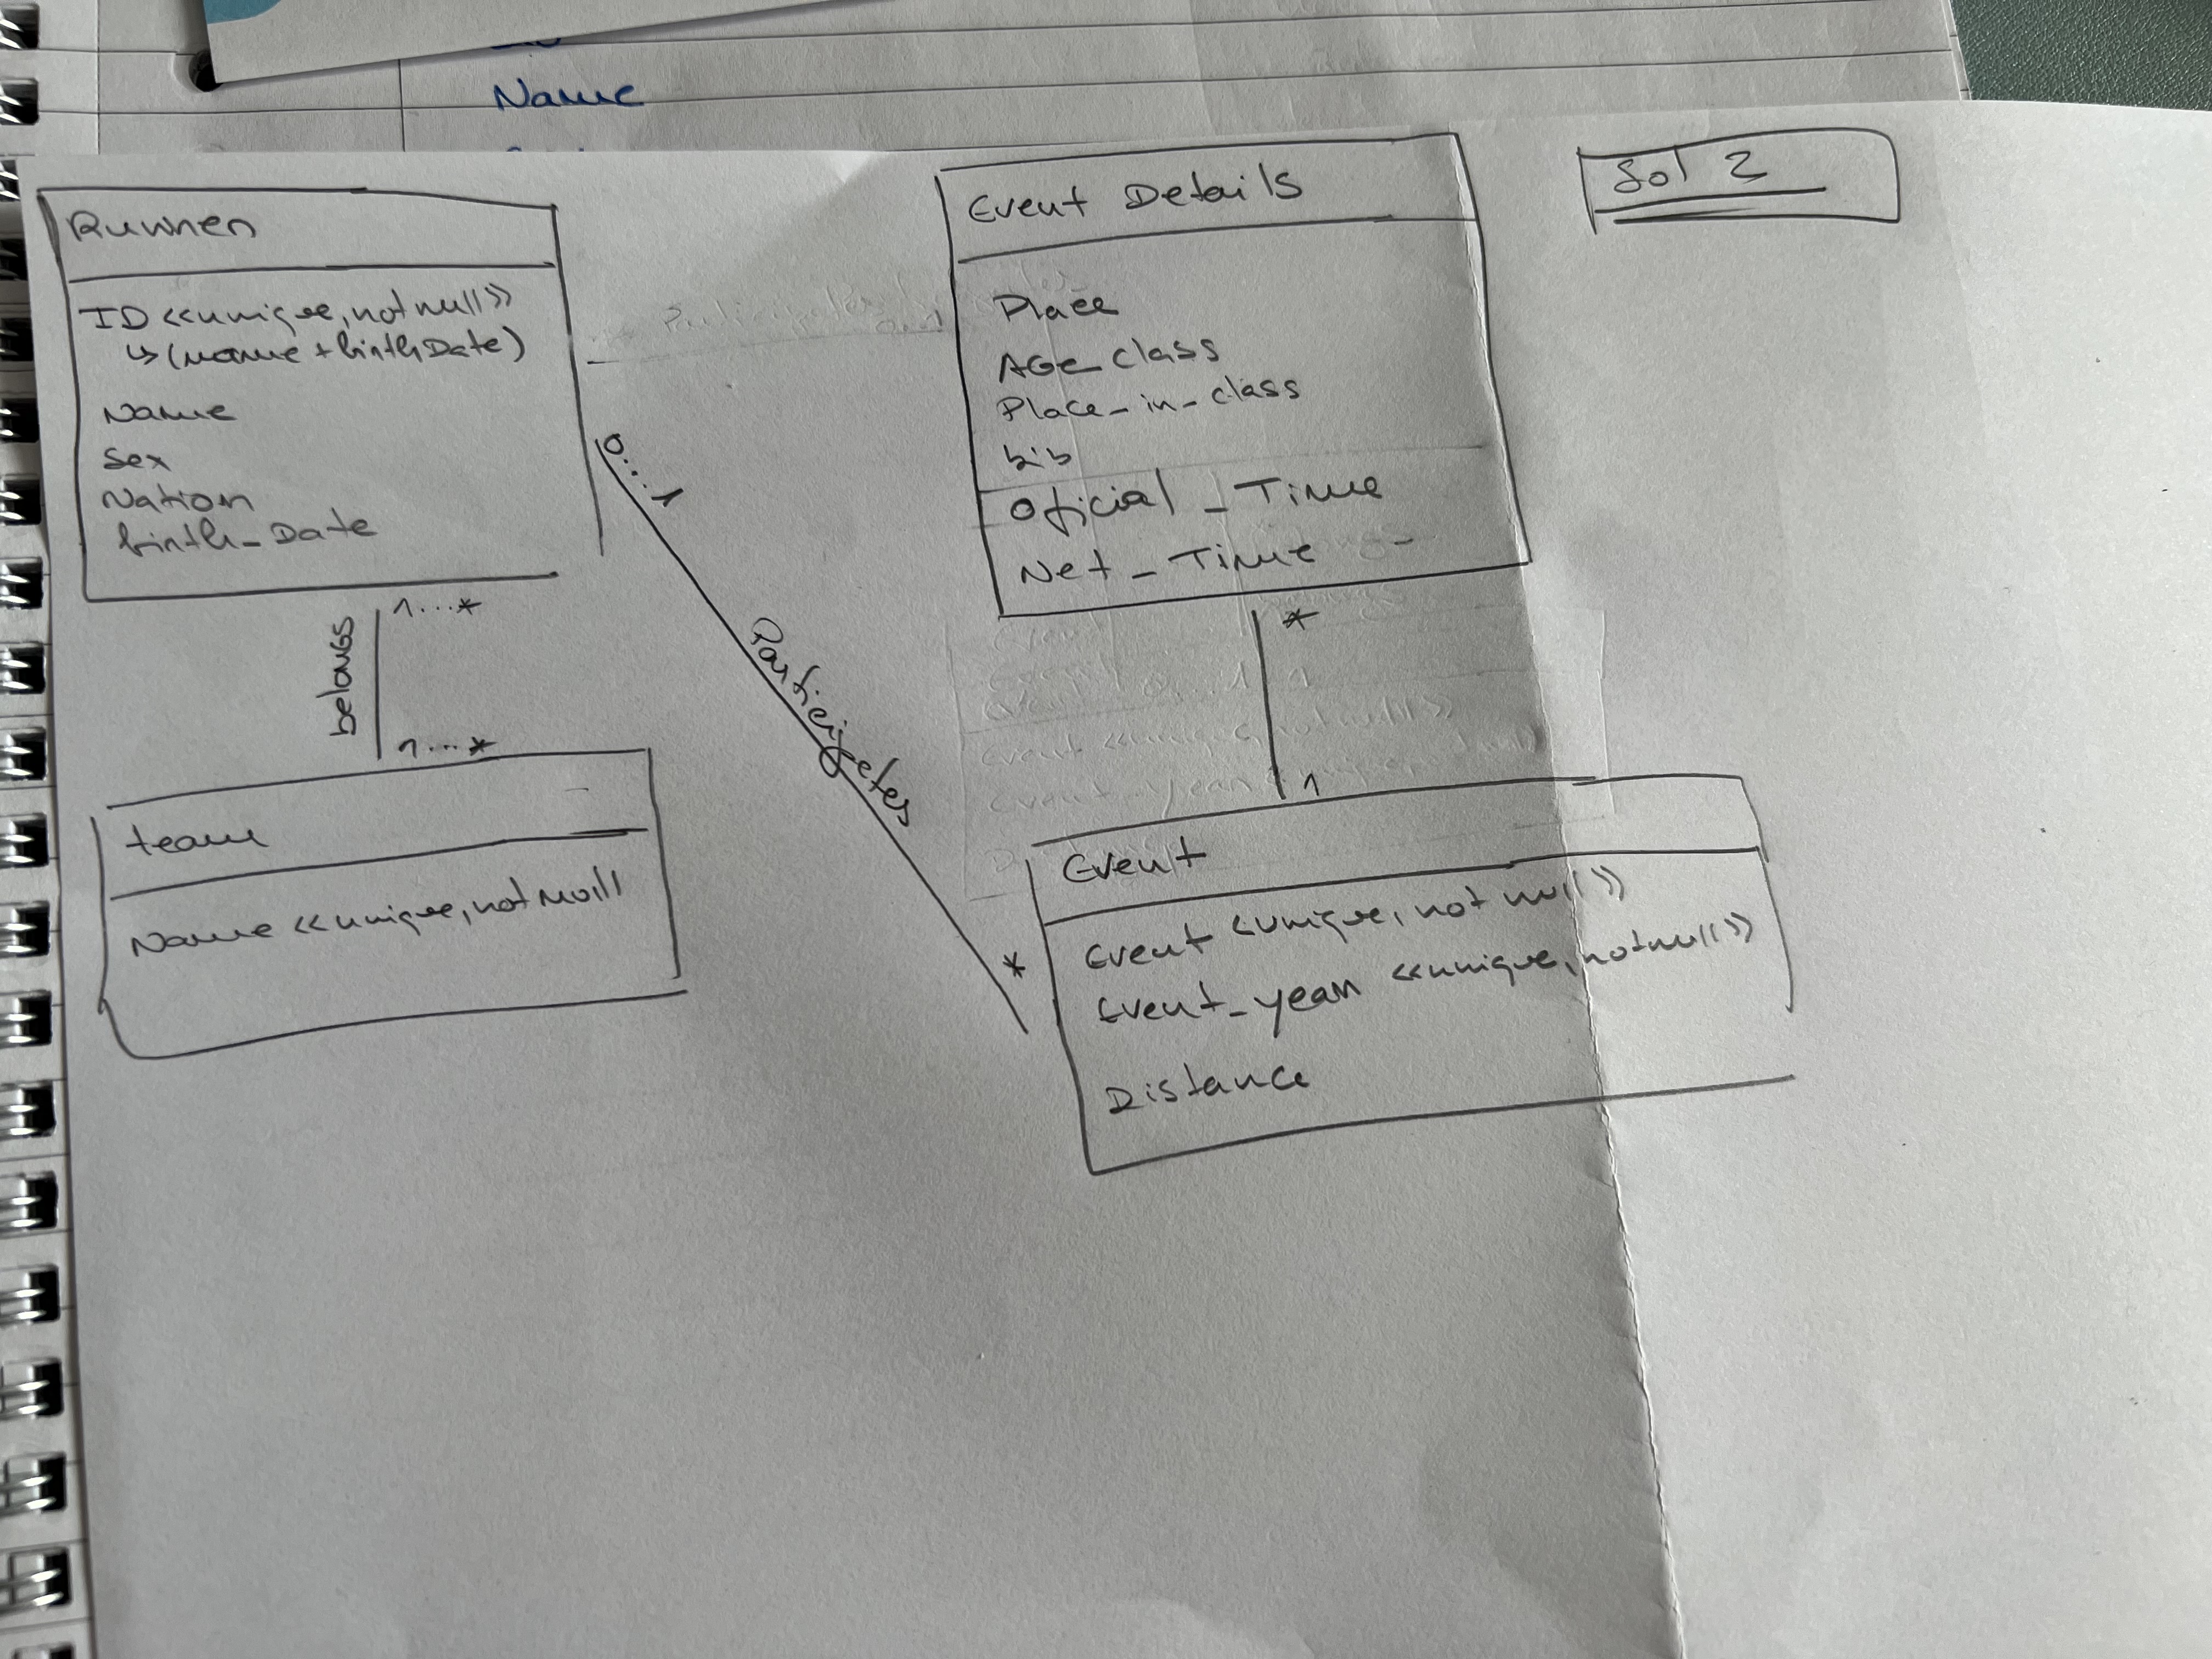 Name
Runner
ID <<unique, not null>>
↳ (name + birthDate)
Name
Sex
Nation
birth_Date
belongs
1...*
1...*
team
Name <<unique, not Null
0...1
Participates
*
Event Details
Place
AGe_class
Place_in_class
bib
Oficial_Time
Net_Time
*
1
Event
Event <unique, not null>>
Event_year <<unique, not null>>
Distance
Sol 2